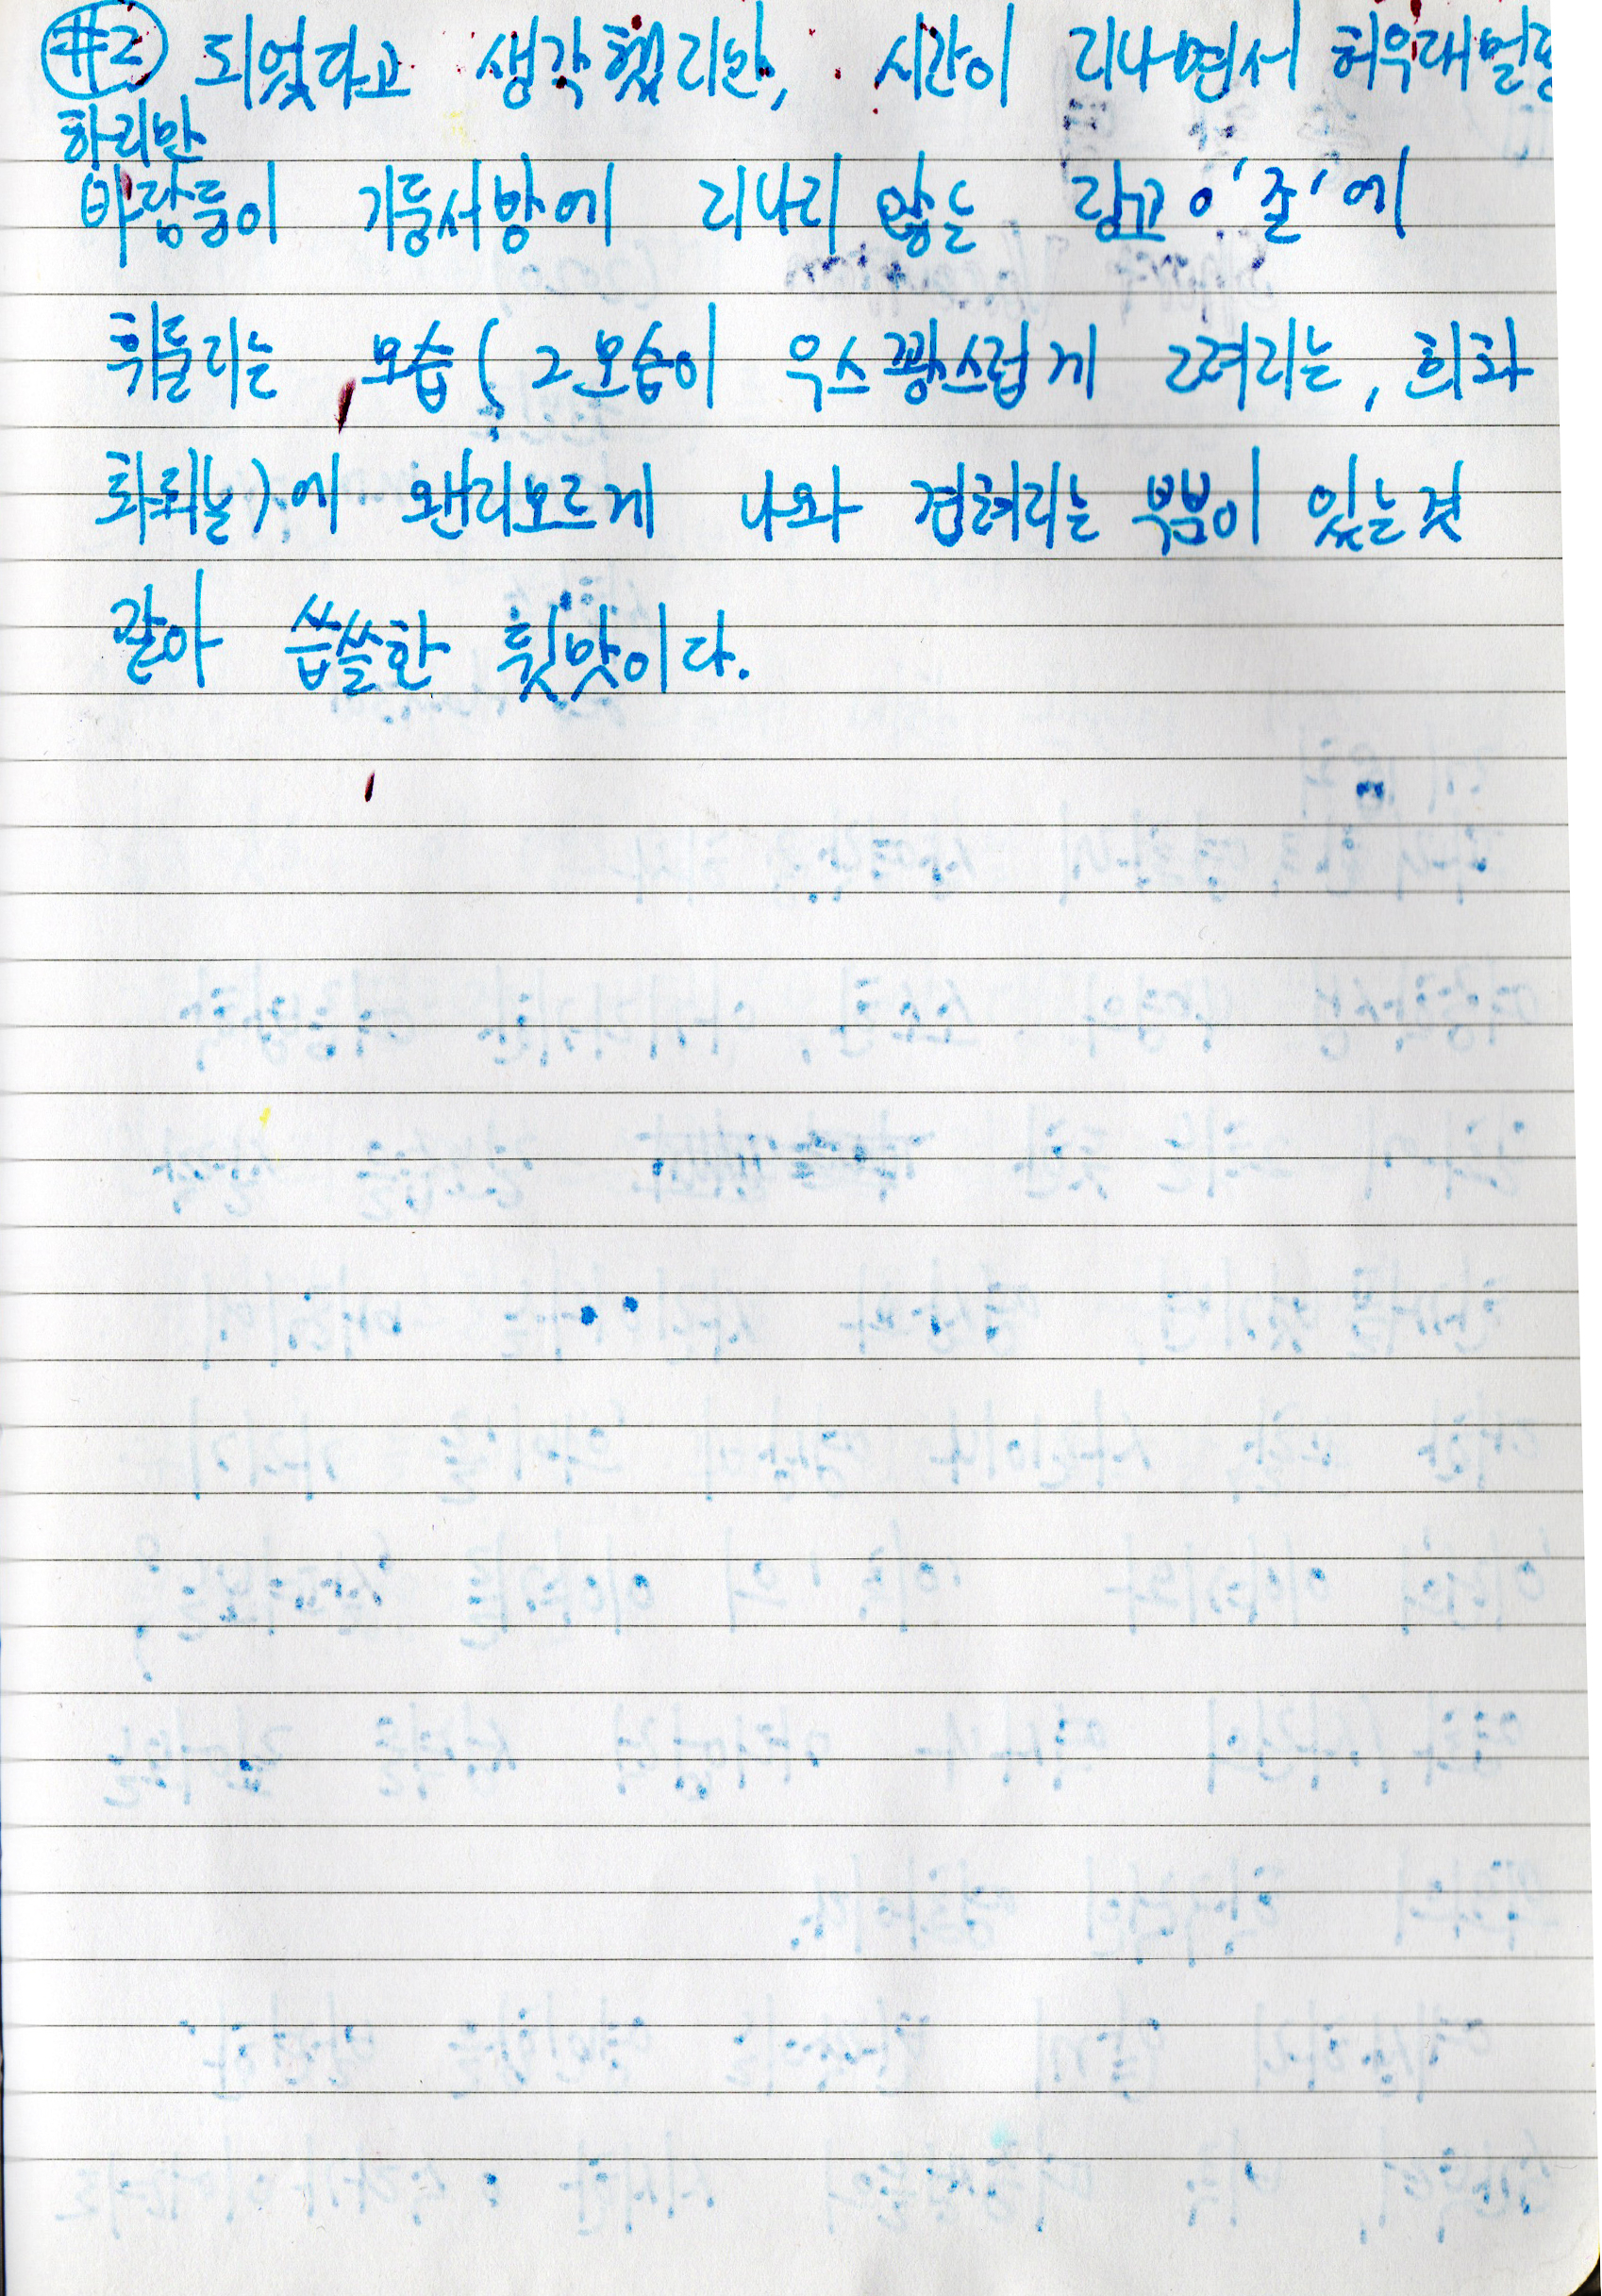 #2 되었다고 생각했지만, 시간이 지나면서 허우대멀쩡
하지만
바람둥이 기둥서방에 지나지 않는 '쥴'에
휘둘리는 모습( 그 모습이 우스꽝스럽게 그려지는, 희화
화되는)에 왠지모르게 나와 겹쳐지는 부분이 있는것
같아 씁쓸한 뒷맛이다.